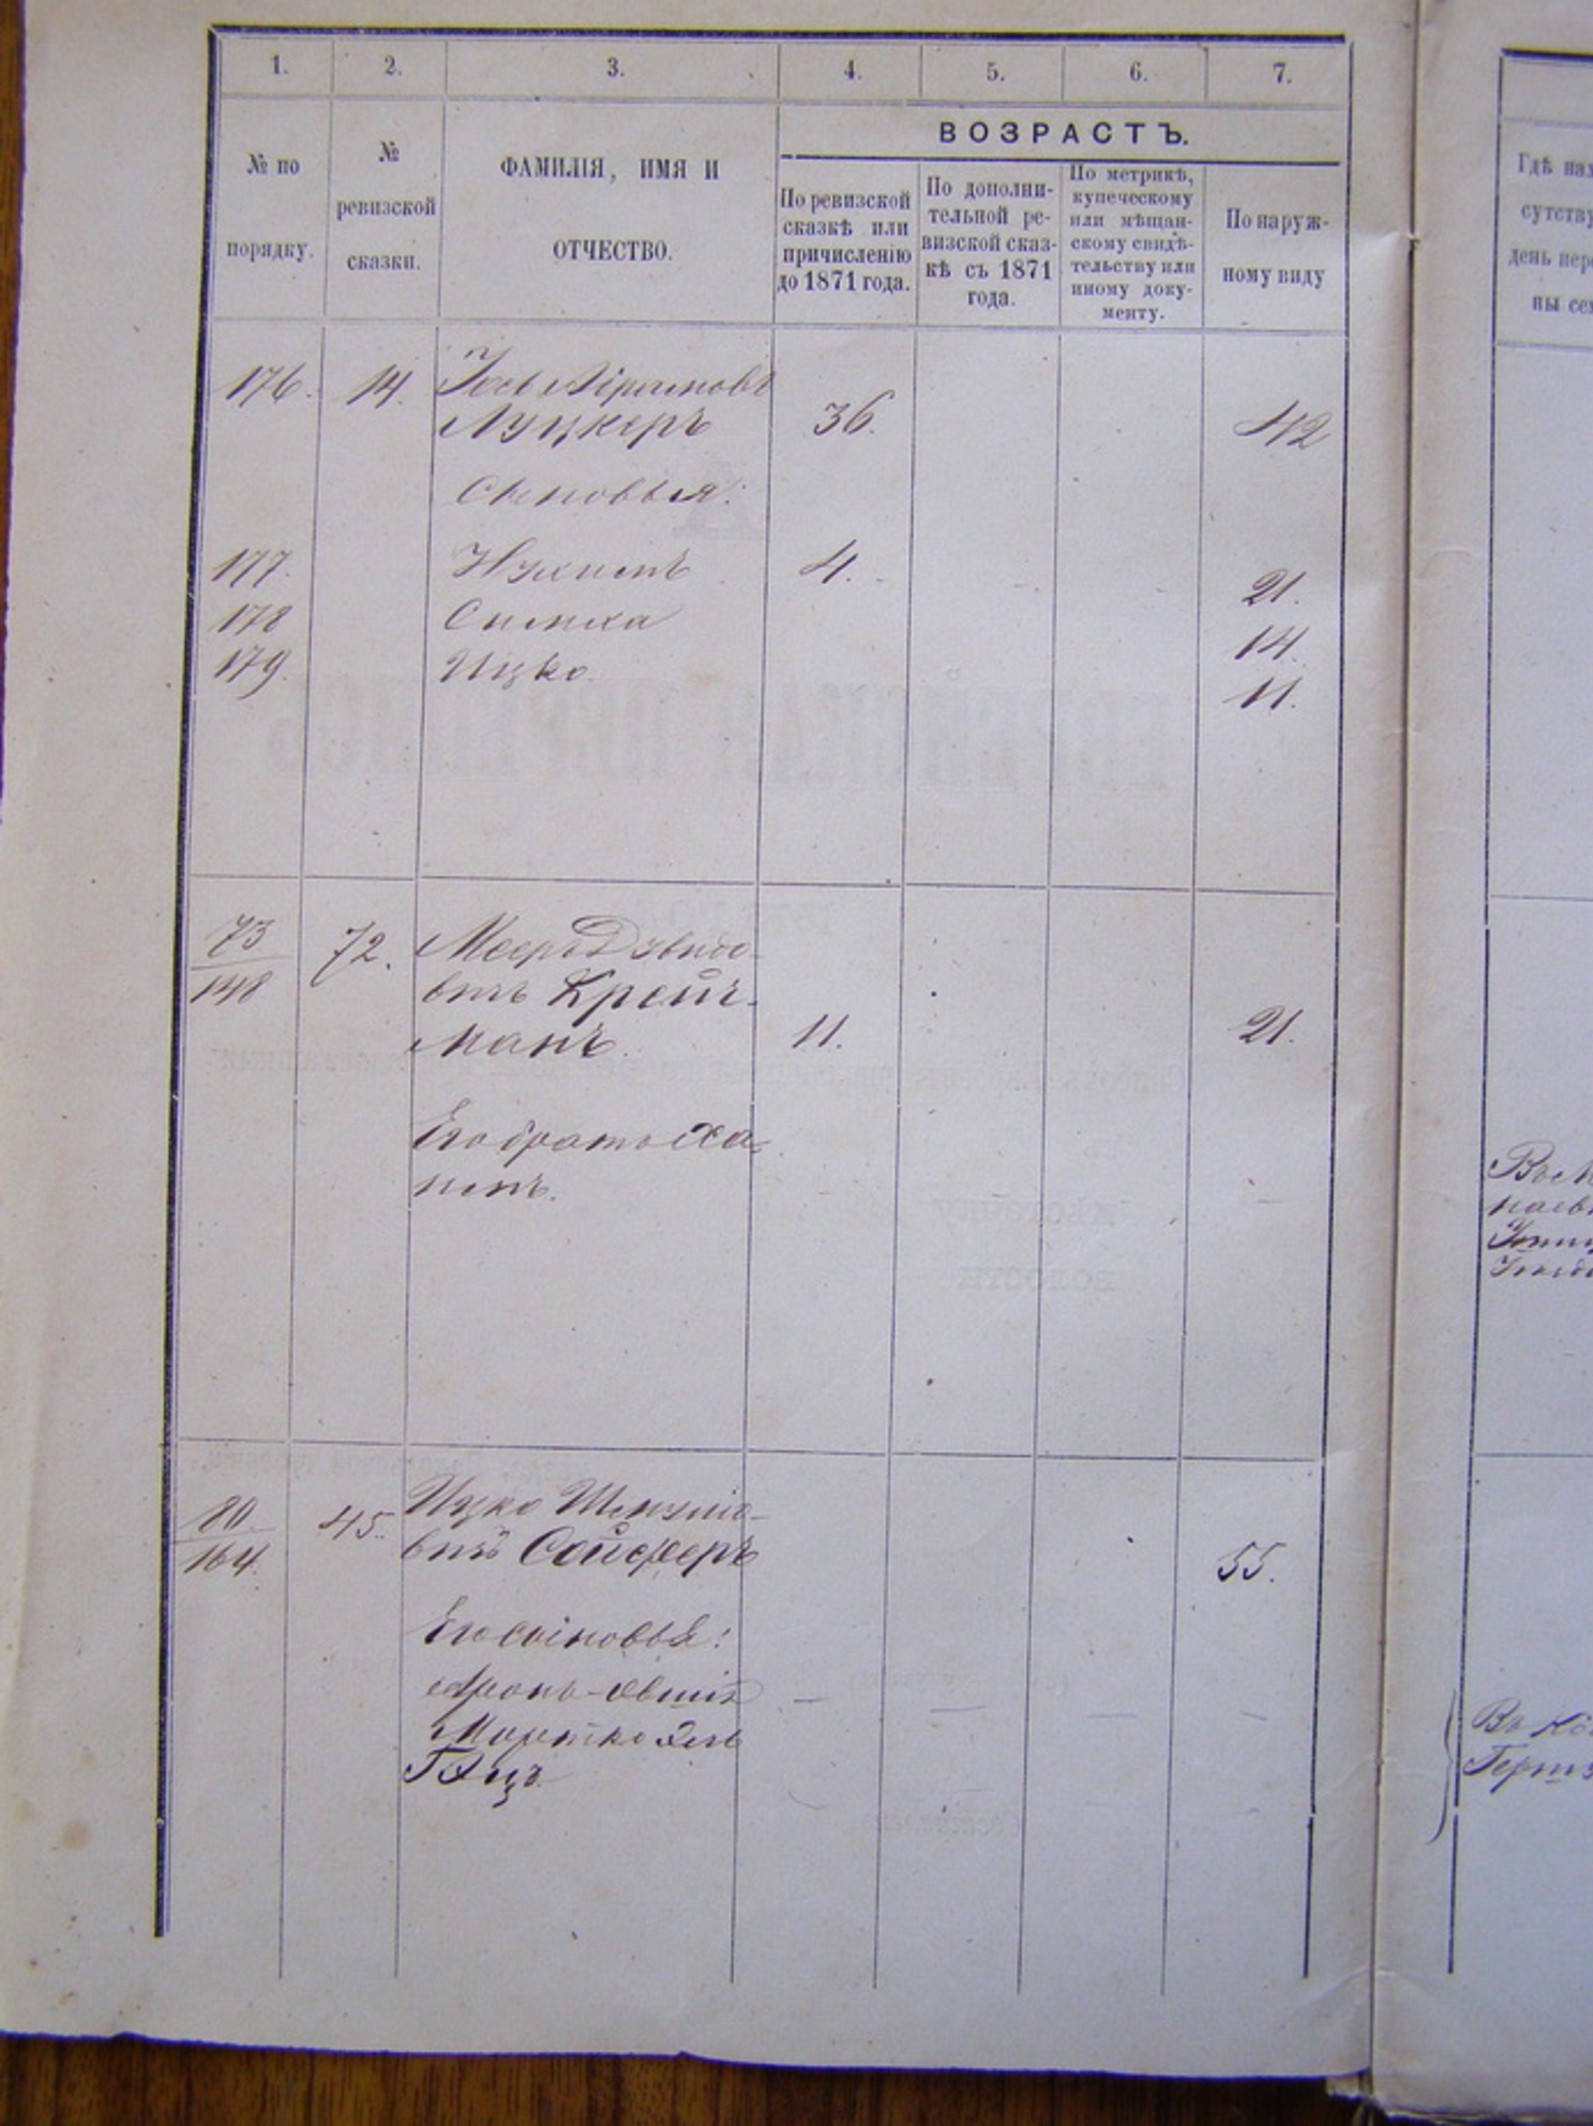 1. 2. 3. 4. 5. 6. 7.
№ по порядку.
№ ревизской сказки.
ФАМИЛІЯ, ИМЯ И
ОТЧЕСТВО.
ВОЗРАСТЪ.
По ревизской
сказкѣ или
причисленію
до 1871 года.
По дополни-
тельной ре-
визской сказ-
кѣ съ 1871
года.
По метрикѣ,
купеческому
или мѣщан-
скому свидѣ-
тельству или
иному доку-
менту.
По наруж-
ному виду
176. 14. Іось Абрамовъ
Луцкеръ 36. 42
Сыновья:
177. Нухимъ 4. 21.
178 Симха 14.
179. Ицко. 11.
73
148
72. Мееръ Давидо-
вичъ Крейч-
манъ. 11. 21.
Его братъ Ха-
имъ.
80.
164.
45. Ицко Шмуліо-
вичъ Сойферъ 55.
Его сыновья:
Аронъ-Овшія
Мортко
Гдѣ нах
сутству
день пер
ны се